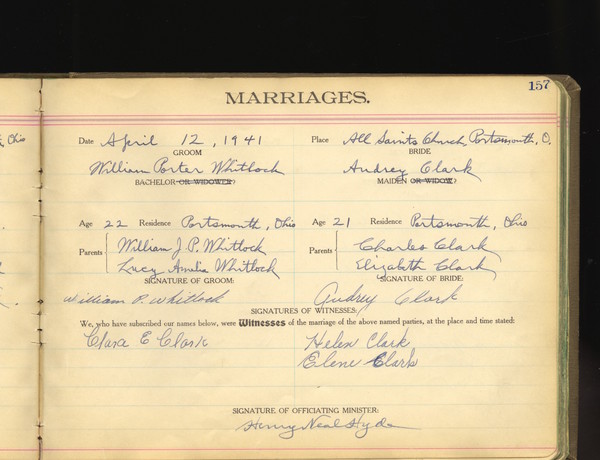 157
MARRIAGES.
Ohio
Date April 12, 1941 Place All Saints Church, Portsmouth, O.
GROOM BRIDE
William Porter Whitlock Audrey Clark
BACHELOR OR WIDOWER? MAIDEN OR WIDOW?
Age 22 Residence Portsmouth, Ohio Age 21 Residence Portsmouth, Ohio
Parents William J. P. Whitlock Parents Charles Clark
Lucy Amelia Whitlock Elizabeth Clark
SIGNATURE OF GROOM: SIGNATURE OF BRIDE:
William P. Whitlock Audrey Clark
SIGNATURES OF WITNESSES:
We, who have subscribed our names below, were Witnesses of the marriage of the above named parties, at the place and time stated:
Clara E Clark Helen Clark
Elene Clark
SIGNATURE OF OFFICIATING MINISTER:
Henry Neal Hyde